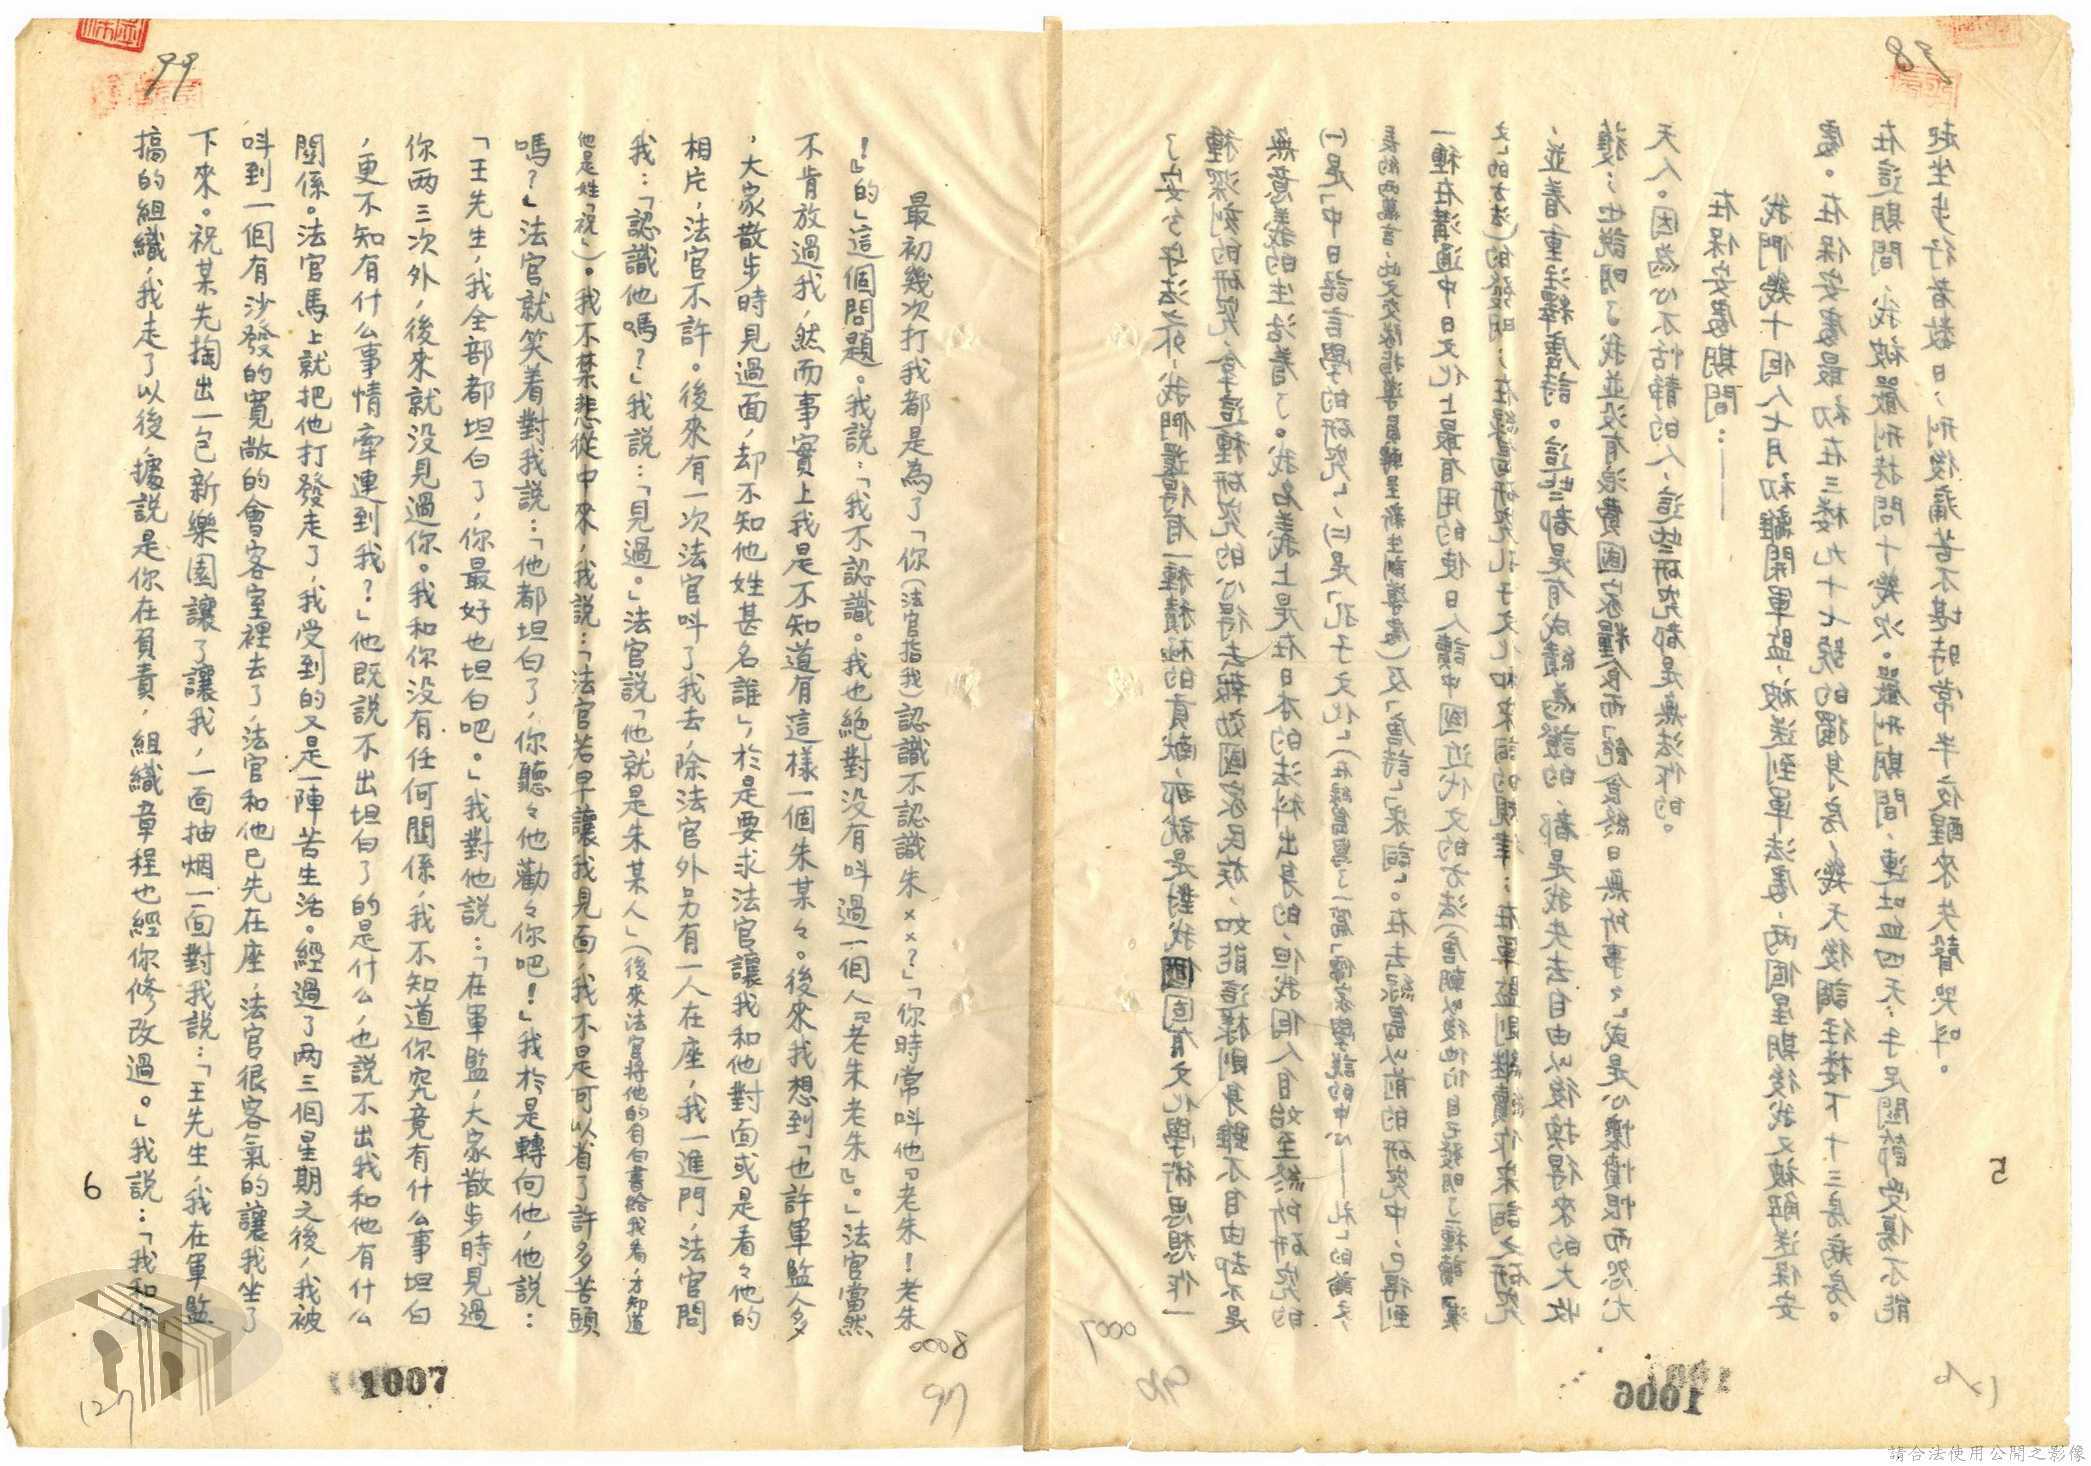 98
了安分守法外,我們還得有一種積極的貢献,那就是對我國固有文化學術思想作一
種深刻的研究,拿這種研究的心得去報効國家民族。如能這樣則身雖不自由却不是
無意義的生活着了。我名義上是在日本的法科出身的,但我個人自始至終所研究的
(一)是「中日語言學的研究」,(二)是「孔子文化」(在綠島寫了一篇「儒家學說的中心——礼」的論文,
長約两萬言,此文交隊指導員轉呈新生訓導處)及「唐詩」「宋詞」。在去綠島以前的研究中,已得到
一種在溝通中日文化上最有用的使日人讀中國近代文的方法(唐朝以後他们自己發明了一種讀「漢
文」的方法)的發明;在綠島研究孔子文化和宋詞的規律;在軍監則継續作宋詞之研究
,並着重注釋唐詩。這些都是有成績為證的,都是我失去自由以後換得來的大收
獲;也說明了我並没有浪費國家糧食而「飽食終日無所事々」或是心懷憤恨而怨尤
天人。因為心不恬静的人,這些研究都是無法作的。
在保安處期間:——
我們幾十個人七月初離開軍監,被送到軍法處,两個星期後我又被解送保安
處。在保安處最初在三楼九十七號的獨身房,幾天後調往楼下十三房病房。
在這期間,我被嚴刑拷問十幾次。嚴刑期間,連吐血四天;手足関節受傷不能
起坐步行者数日,刑後痛苦不堪時常半夜醒來失聲哭叫。
5
0007
96
1006
126
99
最初幾次打我都是為了「你(法官指我)認識不認識朱××?」「你時常叫他『老朱!老朱
!』的」這個問題。我說:「我不認識。我也絕對没有叫過一個人『老朱老朱』。」法官當然
不肯放過我,然而事實上我是不知道有這樣一個朱某々。後來我想到「也許軍監人多
,大家散步時見過面,却不知他姓甚名誰」,於是要求法官讓我和他對面或是看々他的
相片,法官不許。後來有一次法官叫了我去,除法官外另有一人在座,我一進門,法官問
我:「認識他嗎?」我說:「見過。」法官說「他就是朱某人」(後來法官將他的自白書給我看,才知道
他是姓「祝」)。我不禁悲從中來,我說:「法官若早讓我見面,我不是可以省了許多苦頭
嗎?」法官就笑着對我說:「他都坦白了,你聽々他勸々你吧!」我於是轉向他,他說:
「王先生,我全部都坦白了,你最好也坦白吧。」我對他說:「在軍監,大家散步時見過
你两三次外,後來就没見過你。我和你没有任何関係,我不知道你究竟有什么事坦白
,更不知有什么事情牽連到我?」他既說不出坦白了的是什么,也說不出我和他有什么
関係。法官馬上就把他打發走了,我受到的又是一陣苦生活。經過了两三個星期之後,我被
叫到一個有沙發的寬敞的會客室裡去了,法官和他已先在座,法官很客氣的讓我坐了
下來。祝某先掏出一包新樂園讓了讓我,一面抽烟一面對我說:「王先生,我在軍監
搞的組織,我走了以後,據說是你在負責,組織章程也經你修改過。」我說:「我和你
6
0008
97
1007
127
請合法使用公開之影像